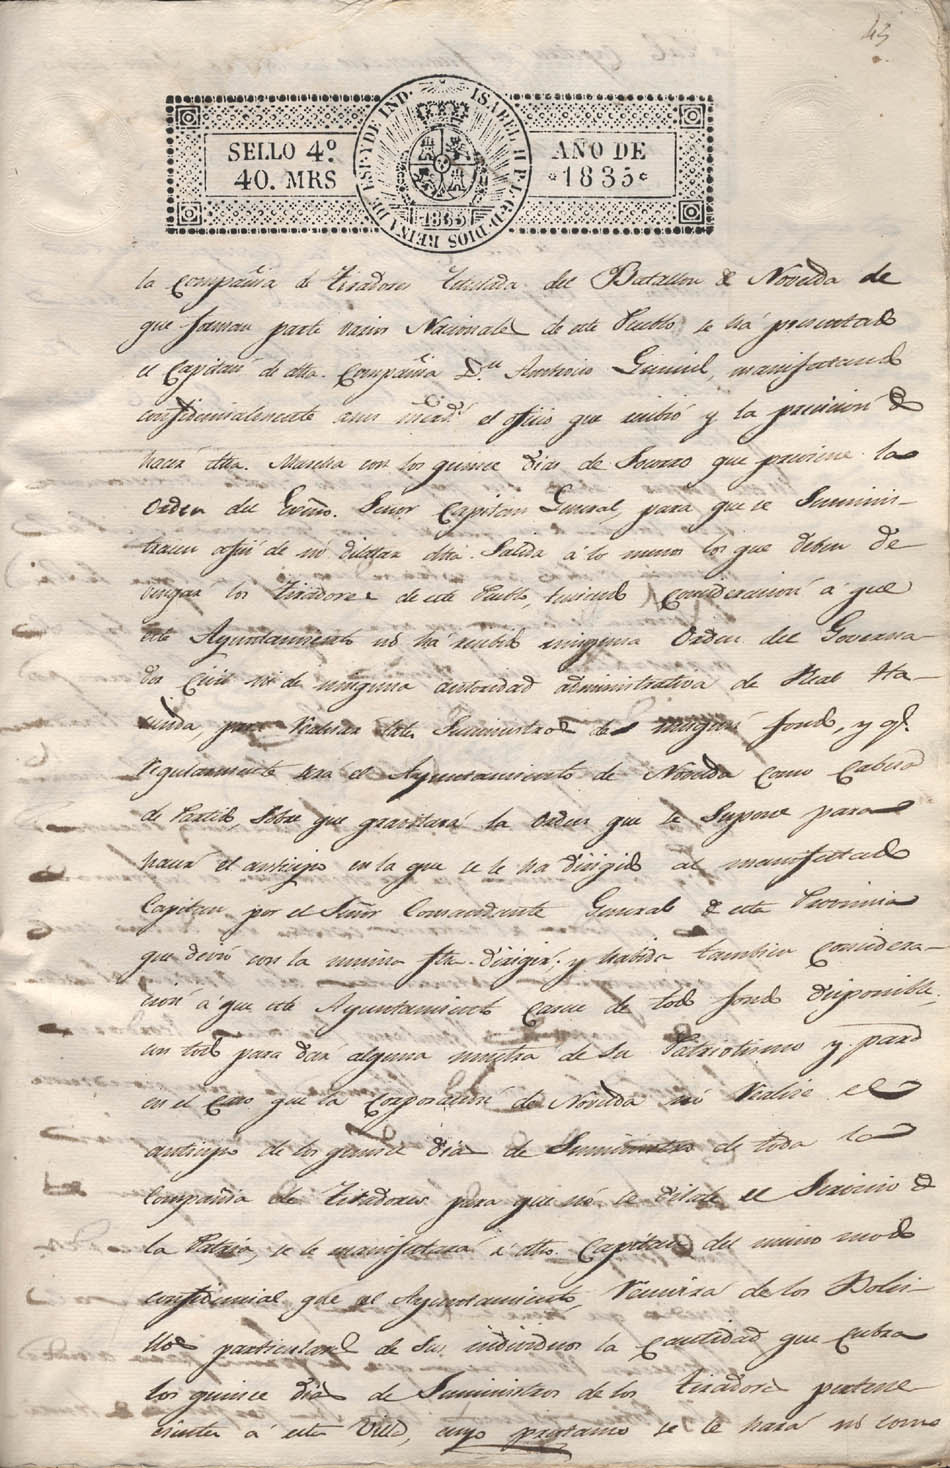 45
SELLO 4º
40. MRS
ISABEL II P. L. G. D. DIOS REINA DE ESP. Y DE IND.
1835
AÑO DE
1835
la Compañia de Tiradores titulada del Batallon de Novelda de
que forman parte varios Nacionales de este Pueblo, se há presentado
el Capitan de dha. Compañia Dn. Antonio Gumiel, manifestando
confidencialmente el oficio que recibió y la precision de
hacer dha. Marcha con los quince dias de Socorro que previene la
Orden del Exmo. Señor Capitan General, para que se Suminis-
tracen afin de nó dilatar dha. Salida á lo menos los que deben de-
vengar los Tiradores de este Pueblo, teniendo consideracion á que
este Ayuntamiento nó há recibido ninguna Orden del Governa-
dor Civil ni de ninguna autoridad administrativa de Real Ha-
cienda, para realizar tales Suministros de ningun fondo, y qe.
regularmente será el Ayuntamiento de Novelda como Cabeza
de Partido, sobre que gravitará la Orden que se Supone para
hacer el anticipo en la que se le ha dirigido al manifestado
Capitan por el Señor Comandante General de esta Provincia
que devió con la misma fha. dirigir; y habida tambien considera-
cion á que este Ayuntamiento carece de todo fondo disponible,
con todo para dar alguna muestra de Su Patriotismo y para
en el caso que la Corporacion de Novelda nó realise el
anticipo de los quince dias de Suministro de toda la
Compañia de Tiradores para que nó se dilate el Servicio de
la Patria, se le manifestará á dho. Capitan del mismo modo
confidencial que el Ayuntamiento, reunirá de los Bolsi-
llos particulares de Sus individuos la cantidad que cubra
los quince dias de Suministros de los Tiradores pertene-
cientes á esta Villa, cuyo prestamo se le hará nó como